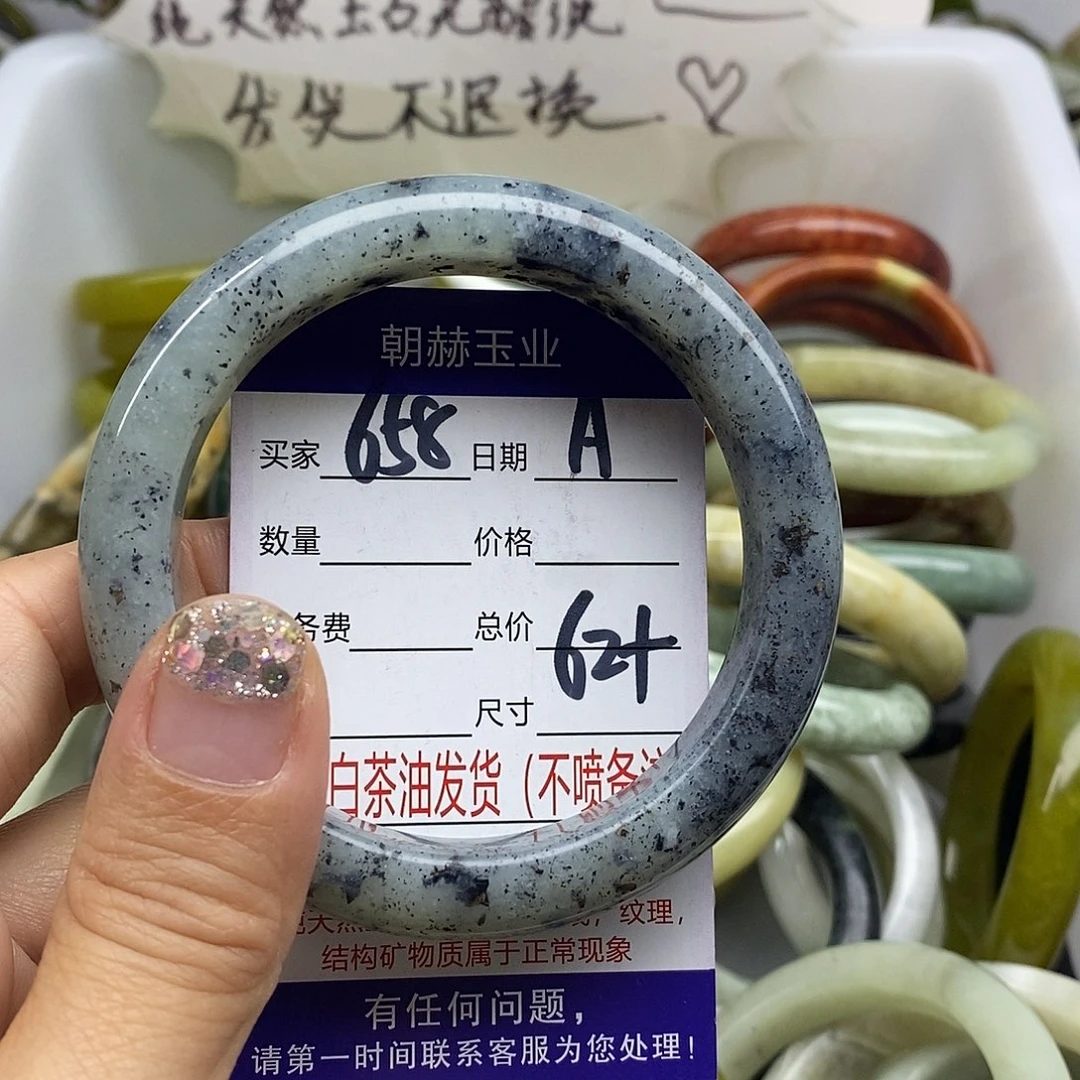 纯天然玉石无酸洗
售出不退换
朝赫玉业
买家 658 日期 A
数量 价格
务费 总价 62+
尺寸
白茶油发货（不喷
纹理，
结构矿物质属于正常现象
有任何问题，
请第一时间联系客服为您处理！